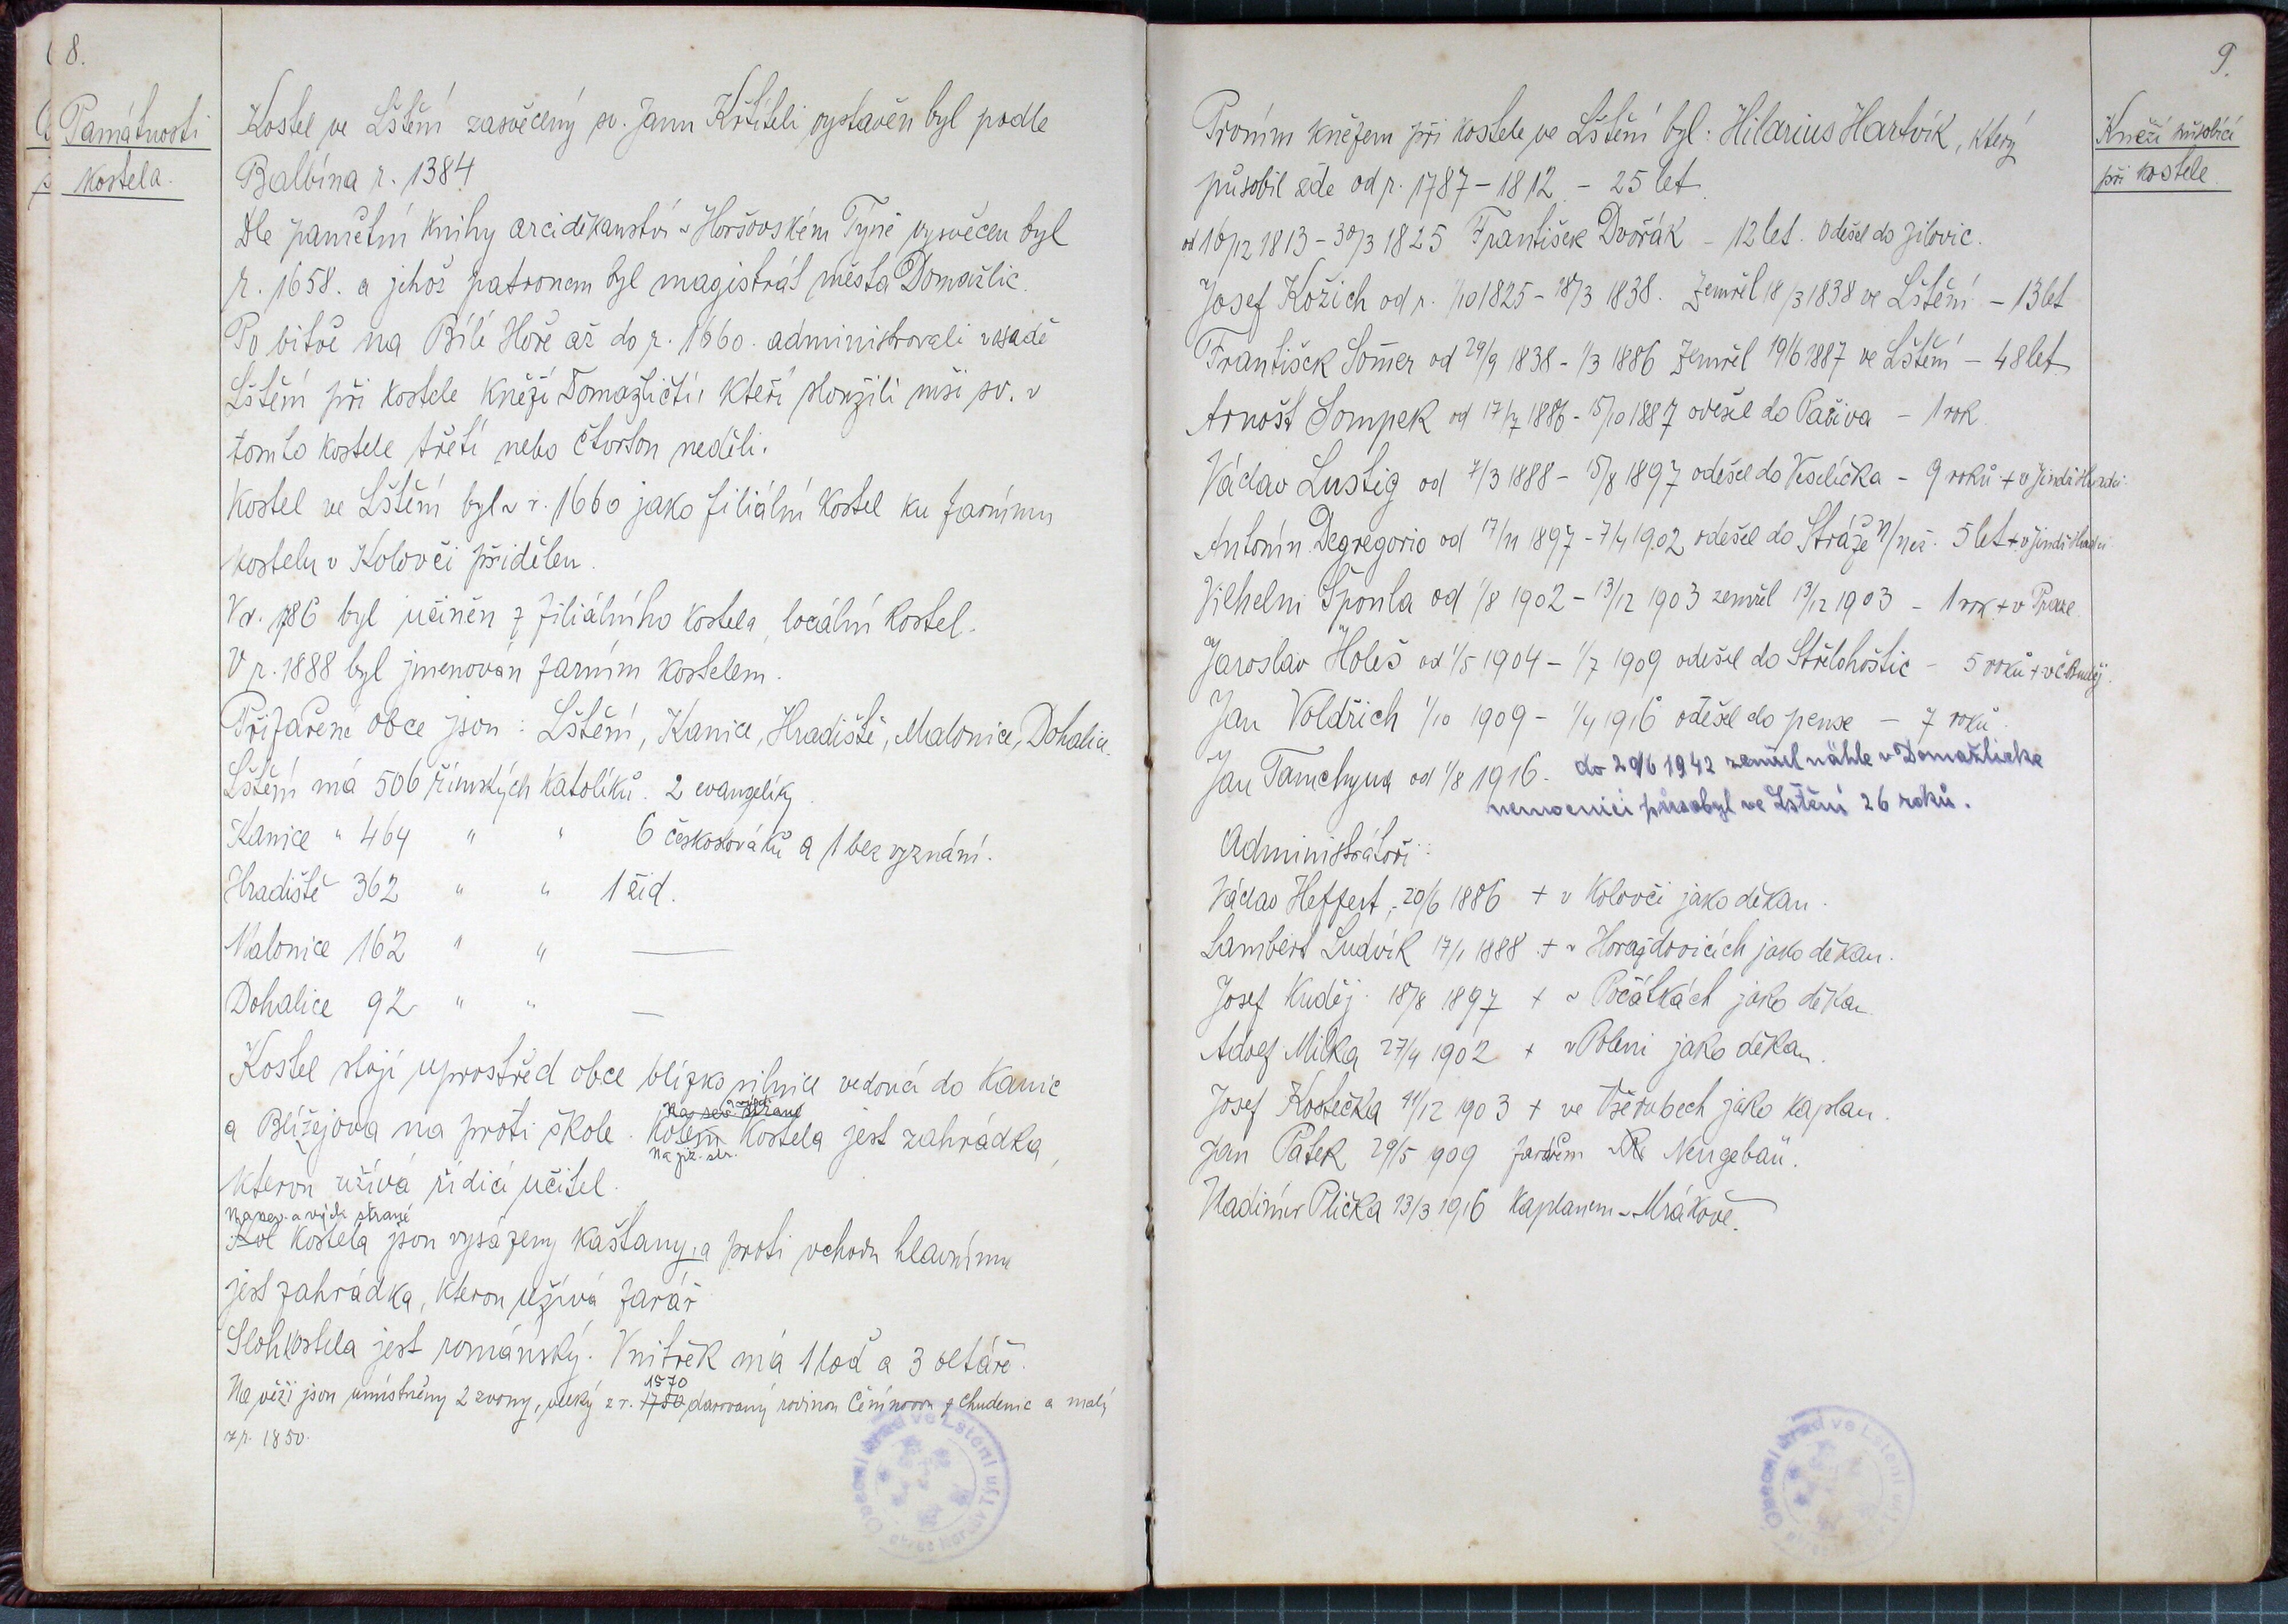 8.
Památnosti
kostela.
Kostel ve Lštění zasvěcený sv. Janu Křtiteli vystavěn byl podle
Balbína r. 1384
Dle pamětní knihy arciděkanství v Horšovském Týně vysvěcen byl
r. 1658. a jehož patronem byl magistrát města Domažlic.
Po bitvě na Bílé Hoře až do r. 1660. administrovali v osadě
Lštění při kostele kněží Domažličtí, kteří sloužili mši sv. v
tomto kostele třetí nebo čtvrtou neděli.
Kostel ve Lštění byl v r. 1660 jako filiální kostel ku farnímu
kostelu v Kolovči přidělen.
V r. 786 byl učiněn z filiálního kostela, locální kostel.
V r. 1888 byl jmenován farním kostelem.
Přifařené obce jsou: Lštění, Kanice, Hradiště, Malonice, Dohalice.
Lštění má 506 římských katolíků. 2 evangelíky.
Kanice " 464 " " 6 českoslováků a 1 bez vyznání.
Hradiště 362 " " 1 žid.
Malonice 162 " " —
Dohalice 92 " " —
Kostel stojí uprostřed obce blízko silnice vedoucí do Kanic
a Blížejova na proti škole. Kolem kostela jest zahrádka,
na již. str.
kterou užívá řídící učitel.
Na sev. a vých. straně
Kol kostela jsou vysázeny kaštany, a proti vchodu hlavnímu
jest zahrádka, kterou užívá farář
Sloh kostela jest románský. Vnitřek má 1 loď a 3 oltáře.
1570
Na věži jsou umístněny 2 zvony, velký z r. 1750 darovaný rodinou Černínovou z Chudenic a malý
z r. 1850.
Obecní úřad ve Lštění
9.
Kněží působící
při kostele.
Prvním knězem při kostele ve Lštění byl: Hilarius Hartvík, který
působil zde od r. 1787 – 1812 – 25 let.
od 16/12 1813 – 30/3 1825 František Dvořák – 12 let. Odešel do Jílovic.
Josef Kožich od r. 1/10 1825 – 18/3 1838. Zemřel 18/3 1838 ve Lštění – 13 let
František Somer od 29/9 1838 – 1/3 1886 Zemřel 19/6 1887 ve Lštění – 48 let
Arnošt Sompek od 17/7 1886 – 15/10 1887 odešel do Pačiva – 1 rok
Václav Lustig od 7/3 1888 – 15/8 1897 odešel do Veselíčka – 9 roků + v Jindř. Hradci.
Antonín Degregorio od 17/11 1897 – 7/4 1902 odešel do Stráže n/než. 5 let + v Jindř. Hradci
Vilhelm Šponla od 1/8 1902 – 13/12 1903 zemřel 13/12 1903 – 1 rok + v Praze.
Jaroslav Holeš od 1/5 1904 – 1/7 1909 odešel do Střelohoštic – 5 roků + v Č. Buděj.
Jan Voldřich 1/10 1909 – 1/4 1916 odešel do pense – 7 roků
Jan Tamchyna od 1/8 1916. do 29/6 1942 zemřel náhle v Domažlické
nemocnici působyl ve Lštění 26 roků.
Administrátoři:
Václav Heffert, 20/6 1886 + v Kolovči jako děkan.
Lambert Ludvík 17/1 1888 + v Horažďovicích jako děkan.
Josef Kuděj 18/8 1897 + v Počátkách jako děkan
Adolf Milka 27/4 1902 + v Poleni jako děkan.
Josef Kostečka 11/12 1903 + ve Všerubech jako kaplan.
Jan Pátek 29/5 909 farářem v Neugebaü.
Vladimír Plička 13/3 1916 kaplanem v Mrákově.
Obecní úřad ve Lštění